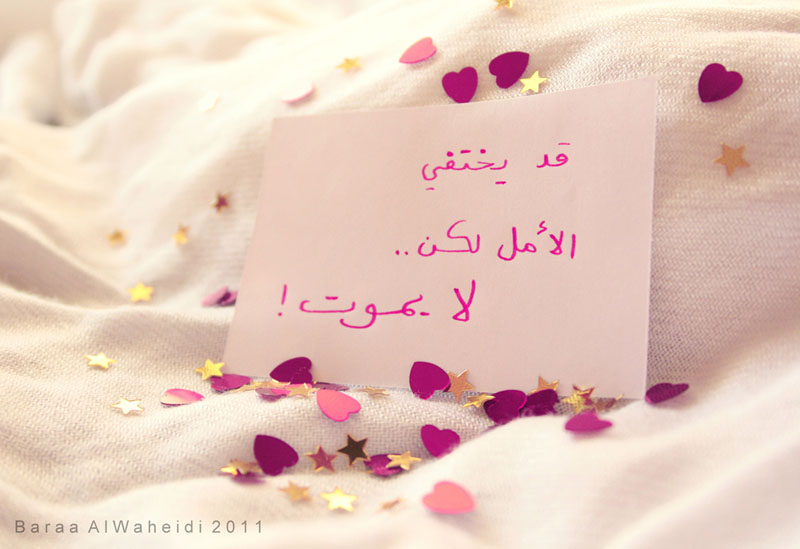 قد يختفي
الأمل لكن..
لا يموت !
Baraa AlWaheidi 2011